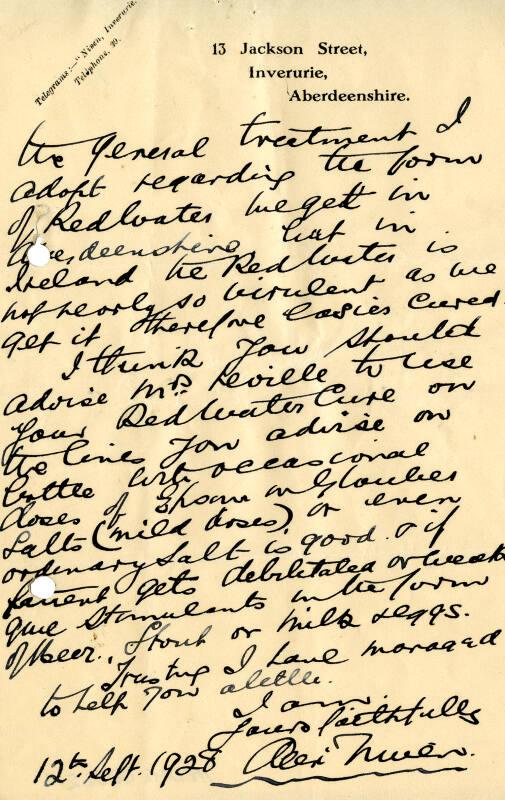 Telegrams:—"Niven, Inverurie."
Telephone, 39.
13 Jackson Street,
Inverurie,
Aberdeenshire.
the general treatment I
adopt regarding the form
of Red Water we gett in
Aberdeenshire but in
Ireland the Red Water is
not nearly so virulent as we
get it therefore easies cured.
I think you should
advise Mrs Neville to use
your Red Water Cure on
the lines you advise on
bottle with occasional
doses of Epsom or Glauber
Salts (mild doses) or even
ordinary salt is good. & if
patient gets debilitated or weak
give stimulants in the form
of Beer, Stout or milk & eggs.
Trusting I have managed
to help you a little.
I am.
Yours faithfully
Niven.
12th Sept. 1928